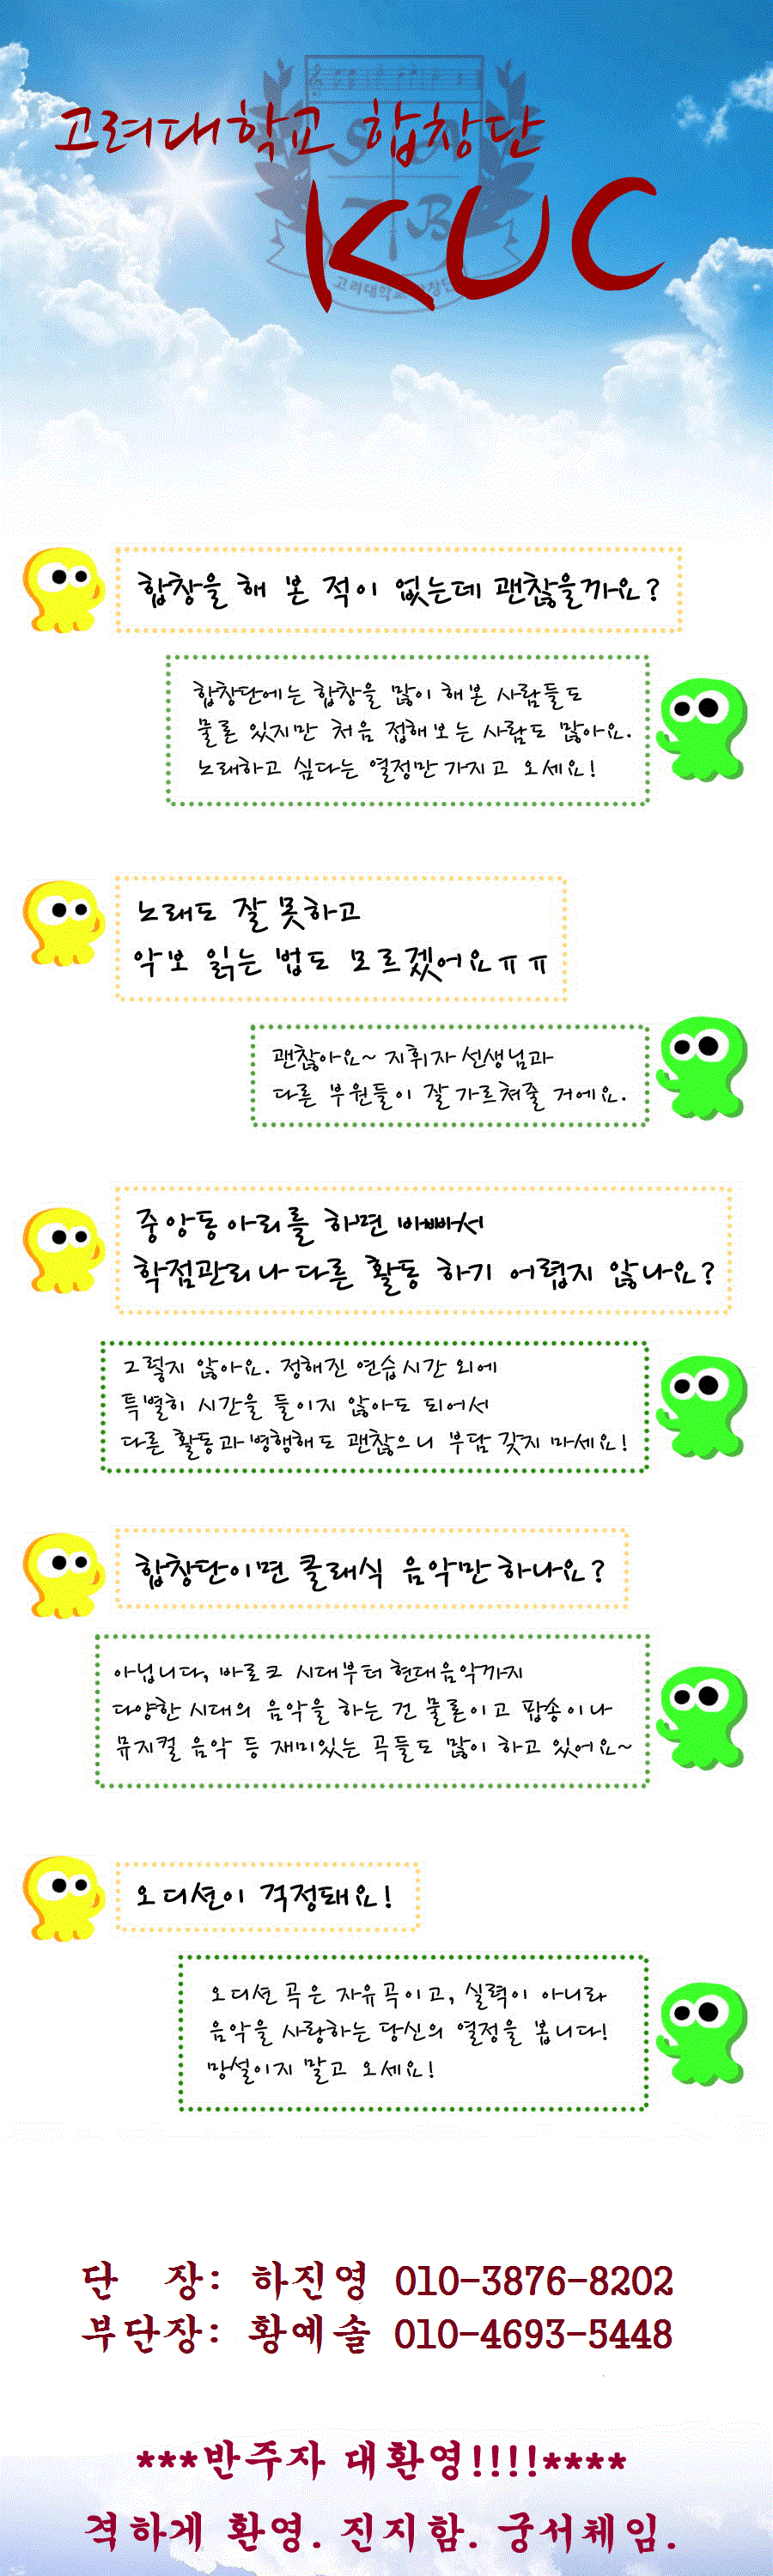 고려대학교 합창단
KUC
S A
T B
고려대학교 합창단
합창을 해 본 적이 없는데 괜찮을까요?
합창단에는 합창을 많이 해본 사람들도
물론 있지만 처음 접해보는 사람도 많아요.
노래하고 싶다는 열정만 가지고 오세요!
노래도 잘 못하고
악보 읽는 법도 모르겠어요ㅠㅠ
괜찮아요~ 지휘자 선생님과
다른 부원들이 잘 가르쳐줄 거에요.
중앙동아리를 하면 바빠서
학점관리나 다른 활동 하기 어렵지 않나요?
그렇지 않아요. 정해진 연습시간 외에
특별히 시간을 들이지 않아도 되어서
다른 활동과 병행해도 괜찮으니 부담 갖지 마세요!
합창단이면 클래식 음악만 하나요?
아닙니다, 바로크 시대부터 현대음악까지
다양한 시대의 음악을 하는 건 물론이고 팝송이나
뮤지컬 음악 등 재미있는 곡들도 많이 하고 있어요~
오디션이 걱정돼요!
오디션 곡은 자유곡이고, 실력이 아니라
음악을 사랑하는 당신의 열정을 봅니다!
망설이지 말고 오세요!
단 장: 하진영 010-3876-8202
부단장: 황예솔 010-4693-5448
***반주자 대환영!!!!****
격하게 환영. 진지함. 궁서체임.